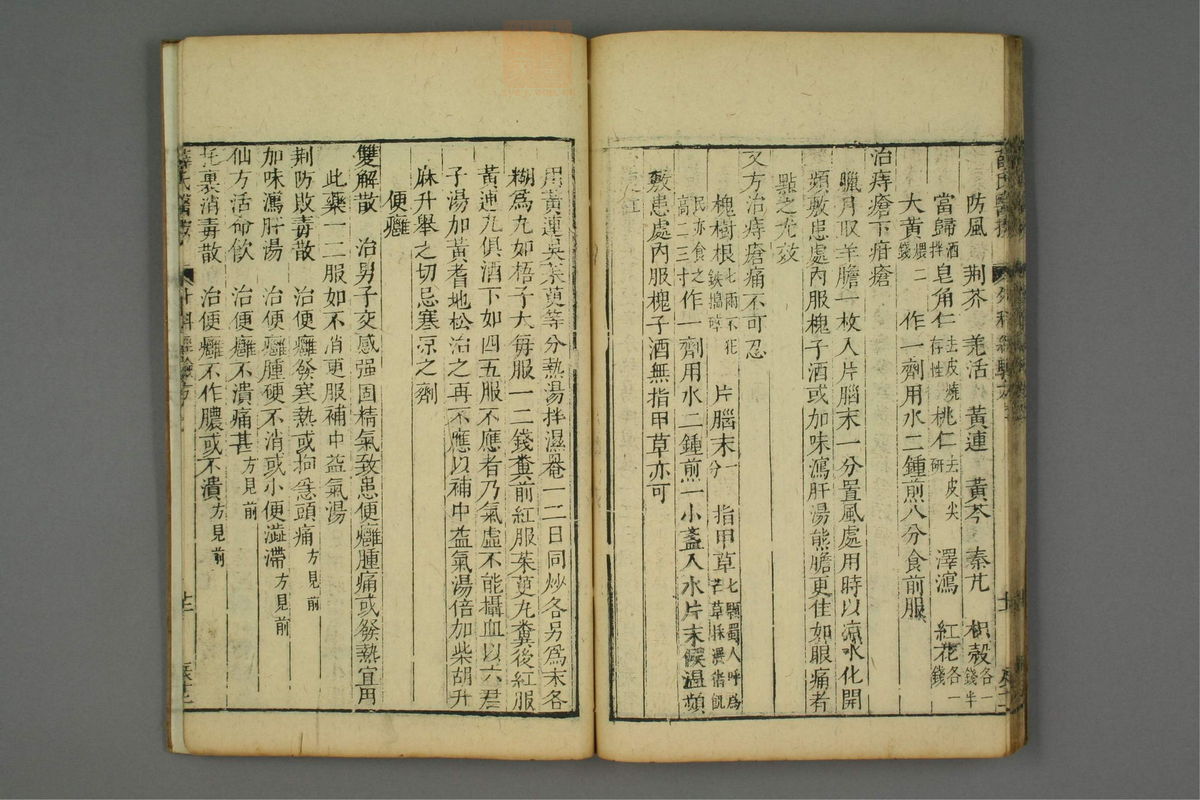 防風 荆芥 羌活 黄連 黄芩 秦艽 枳殻各一錢半
當歸酒拌 皂角仁去皮燒存性 桃仁去皮尖研 澤瀉 紅花各一錢
大黄煨二錢 作一劑用水二鍾煎八分食前服
治痔瘡下疳瘡
臘月取羊膽一枚入片腦末一分置風處用時以凉水化開
頻敷患處内服槐子酒或加味瀉肝湯熊膽更佳如眼痛者
點之尤效
又方治痔瘡痛不可忍
槐樹根七兩不犯鉄搗碎 片腦末一分 指甲草七顆蜀人呼爲
民亦食之高二三寸作一劑用水二鍾煎一小盞入水片末候温頻
敷患處内服槐子酒無指甲草亦可
用黄連吳茱萸等分熱湯拌濕罨一二日同炒各另爲末各
糊爲丸如梧子大每服一二錢糞前紅服茱萸丸糞後紅服
黄連丸俱酒下如四五服不應者乃氣虚不能攝血以六君
子湯加黄耆地松治之再不應以補中益氣湯倍加柴胡升
麻升舉之切忌寒凉之劑
便癰
雙解散 治男子交感强固精氣致患便癰腫痛或發熱宜用
此藥一二服如不消更服補中益氣湯
荆防敗毒散 治便癰發寒熱或拘急頭痛方見前
加味瀉肝湯 治便癰腫硬不消或小便澁滯方見前
仙方活命飲 治便癰不潰痛甚方見前
托裏消毒散 治便癰不作膿或不潰方見前